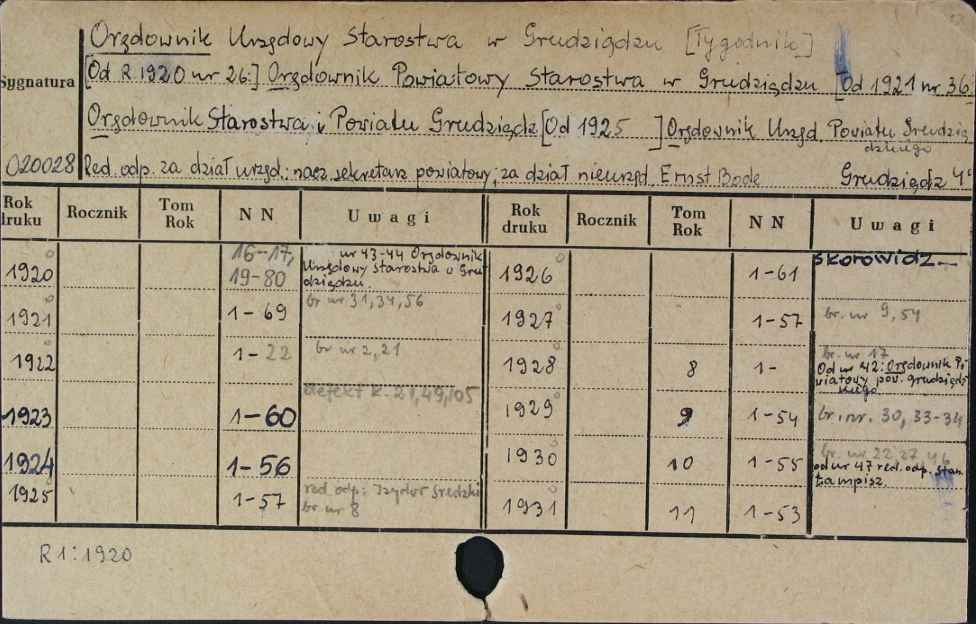 Orędownik Urzędowy Starostwa w Grudziądzu [Tygodnik]
[Od R 1920 nr 26:] Orędownik Powiatowy Starostwa w Grudziądzu [Od 1921 nr 36:
Sygnatura
Orędownik Starostwa i Powiatu Grudziądz [Od 1925 ] Orędownik Urzęd. Powiatu Grudzią
dzkiego
020028 Red. odp. za dział urzęd.: nacz. sekretarz powiatowy; za dział nieurzęd. Ernst Bode Grudziądz 4°
Rok druku Rocznik Tom Rok N N Uwagi Rok druku Rocznik Tom Rok N N Uwagi
1920 16-17, 19-80 nr 43-44 Orędownik Urzędowy Starostwa w Gru dziądzu. 1926 1-61 skorowidz
1921 1-69 br nr 31, 34, 56 1927 1-57 br. nr 9, 54
1922 1-22 br nr 2, 21 1928 8 1- br. nr 17 Od nr 42: Orędownik Po wiatowy pow. grudziądz kiego
defekt k. 21, 49, 105
1923 1-60 1929 9 1-54 br. nr. 30, 33-34
1924 1-56 1930 10 1-55 br. nr 22, 27, 46 od nr 47 red. odp. Stan. Łampisz.
1925 1-57 red. odp: Izydor Średzki br nr 8 1931 11 1-53
R 1: 1920